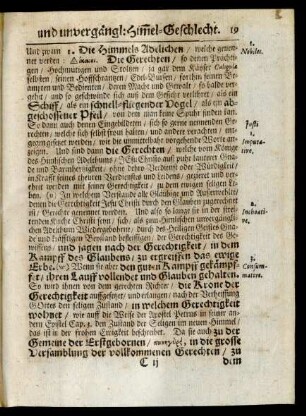 und unvergängl: Himel-Geschlecht. 19
Und zwarn 1. Die Himmels Adelichen / welche genen-
net werden: Die Gerechten / so denen Prächti-
gen / Hochmütigen und Stolzen / ja gar dem Käyser Caligula
selbsten / seinen Hoffschranzen / Edel-Buben / forthin seinen Be-
ampten und Bedienten / deren Macht und Gewalt / so bald ver-
geht / und so geschwinde sich auf dem Gesicht verlieret / als ein
Schiff / als ein schnell-fliegender Vogel / als ein ab-
geschossener Pfeil / von dem man keine Spuhr finden kan.
So dann auch denen Eingebildeten / sich so gerne nennenden
welche sich selbst from halten / und andere verachten /
werden / wie die unmittelbahr vorgehende Worte an-
zeigen. Und sind dann die Gerechten / welche vom Könige
des Himlischen Adelthums / JEsu Christo auß pubr lauterer Gnade
und Barmherzigkeit / ohne deren Verdienst oder Würdigkeit /
in Krafft seines theuren Verdiensts und Leidens / gezieret und ver-
ehret werden mit seiner Gerechtigkeit / zu dem ewigen seligen Le-
ben. (v) In welchem Verstande alle Gläubige und Außerwehlte
denen die Gerechtigkeit JEsu Christi durch den Glauben zugerechnet
ist / Gerechte genennet werden. Und so dann / als die in der strei-
tenden Kirche Christi seyn / sich / als zum Himlischen unvergänglichem
Adelthum Wiedergebohrne / durch des H. Geistes Gna-
de und kräfftigen Beystand befleissigen / der Gerechtigkeit des Ge-
wissens / und jagen nach der Gerechtigkeit / in dem
Kampff des Glaubens / zu ergreiffen das ewige
Erbe. (w) Wenn sie aber den guten Kampff gekämpf-
fet / ihren Lauff vollendet und Glauben gehalten.
So wird ihnen von dem gerechten Richter / die Krone der
Gerechtigkeit auffgesetzt / und erlangen / nach der Verheissung
GOttes den seligen Zustand / in welchem Gerechtigkeit
wohnet / wie auff die Weise der Apostel Petrus in seiner
andern Epistel Cap. 3. den Zustand der Seligen im neuen Himmel /
das ist in der frohen Ewigkeit beschreibet. Da sie auch zu der
Gemeine der Erstgebornen / in die grosse
Versamblung der vollkommenen Gerechten / zu
C ij dem
1.
Nobiles.
Justi
1.
Imputa-
tive.
2.
Inchoati-
ve.
3.
Consum-
mative.